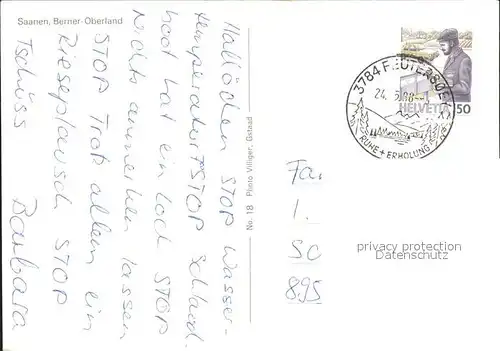 Saanen, Berner-Oberland
Hallöchen STOP Wasser-
temperatur ? STOP Schlauch-
boot hat ein Loch STOP
Nichts anmerken lassen
STOP Trotz allem ein
Rieseplausch STOP
Tschüss
Barbara
No. 18 Photo Villiger, Gstaad
3784 FEUTERSOEY
24. 5.
RUHE + ERHOLUNG
HELVETIA 50
Fa.
1.
SC
895
privacy protection
DATENSCHUTZ